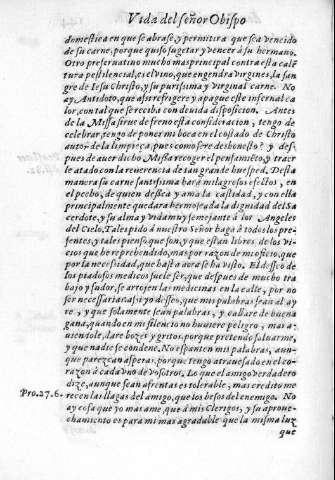 Vida del señor Obispo
domestica en que se abrase, y permitira que sea vencido
de su carne, porque quiso sugetar y vencer à su hermano.
Otro preseruatiuo mucho mas principal contra esta calẽ
tura pestilencial, es el vino, que engendra virgines, la san
gre de Iesu Christo, y su purissima y virginal carne. No
ay Antidoto, que assi refrigere y apague este infernal ca
lor, con tal que se reciba con deuida disposicion. Antes
de la Missa sirue de freno esta consideracion, tengo de
celebrar, tengo de poner mi boca en el costado de Christo
autor de la limpieça, pues como sere deshonesto? y des
pues de auer dicho Missa recoger el pensamiẽto, y traer
le atado con la reuerencia de tan grande huesped. Desta
manera su carne santissima harà milagrosos efectos, en
el pecho, de quien dessea y ama la castidad, y con ella
principalmente quedara hermoseada la dignidad del Sa
cerdote, y su alma y vida muy semejante à los Angeles
del Cielo. Tales pido à nuestro Señor haga à todos los pre
sentes, y tales pienso que son, y que estan libres de los vi
cios que he reprehendido, mas por razon de mi oficio, que
por la necessidad, que hasta aora se ha visto. El desseo de
los piadosos medicos suele ser, que despues de mucho tra
bajo y sudor, se arrojen las medicinas en la calle, por no
ser necessarias, assi yo desseo, que mis palabras sean al ay
re, y que solamente sean palabras, y callare de buena
gana, quando en mi silencio no huuiere peligro, mas a-
uiendole, dare bozes y gritos, porque pretendo saluarme,
y que nadie se condene. No espanten mis palabras, aun-
que parezcan asperas, porque tengo atrauesado en el co-
razon à cada vno de vosotros. Lo que el amigo verdadero
dize, aunque sean afrentas es tolerable, mas credito me
Pro. 27. 6. recen las llagas del amigo, que los besos del enemigo. No
ay cosa que yo mas ame, que à mis Clerigos, y su aproue-
chamiento es para mi mas agradable que la misma luz
que